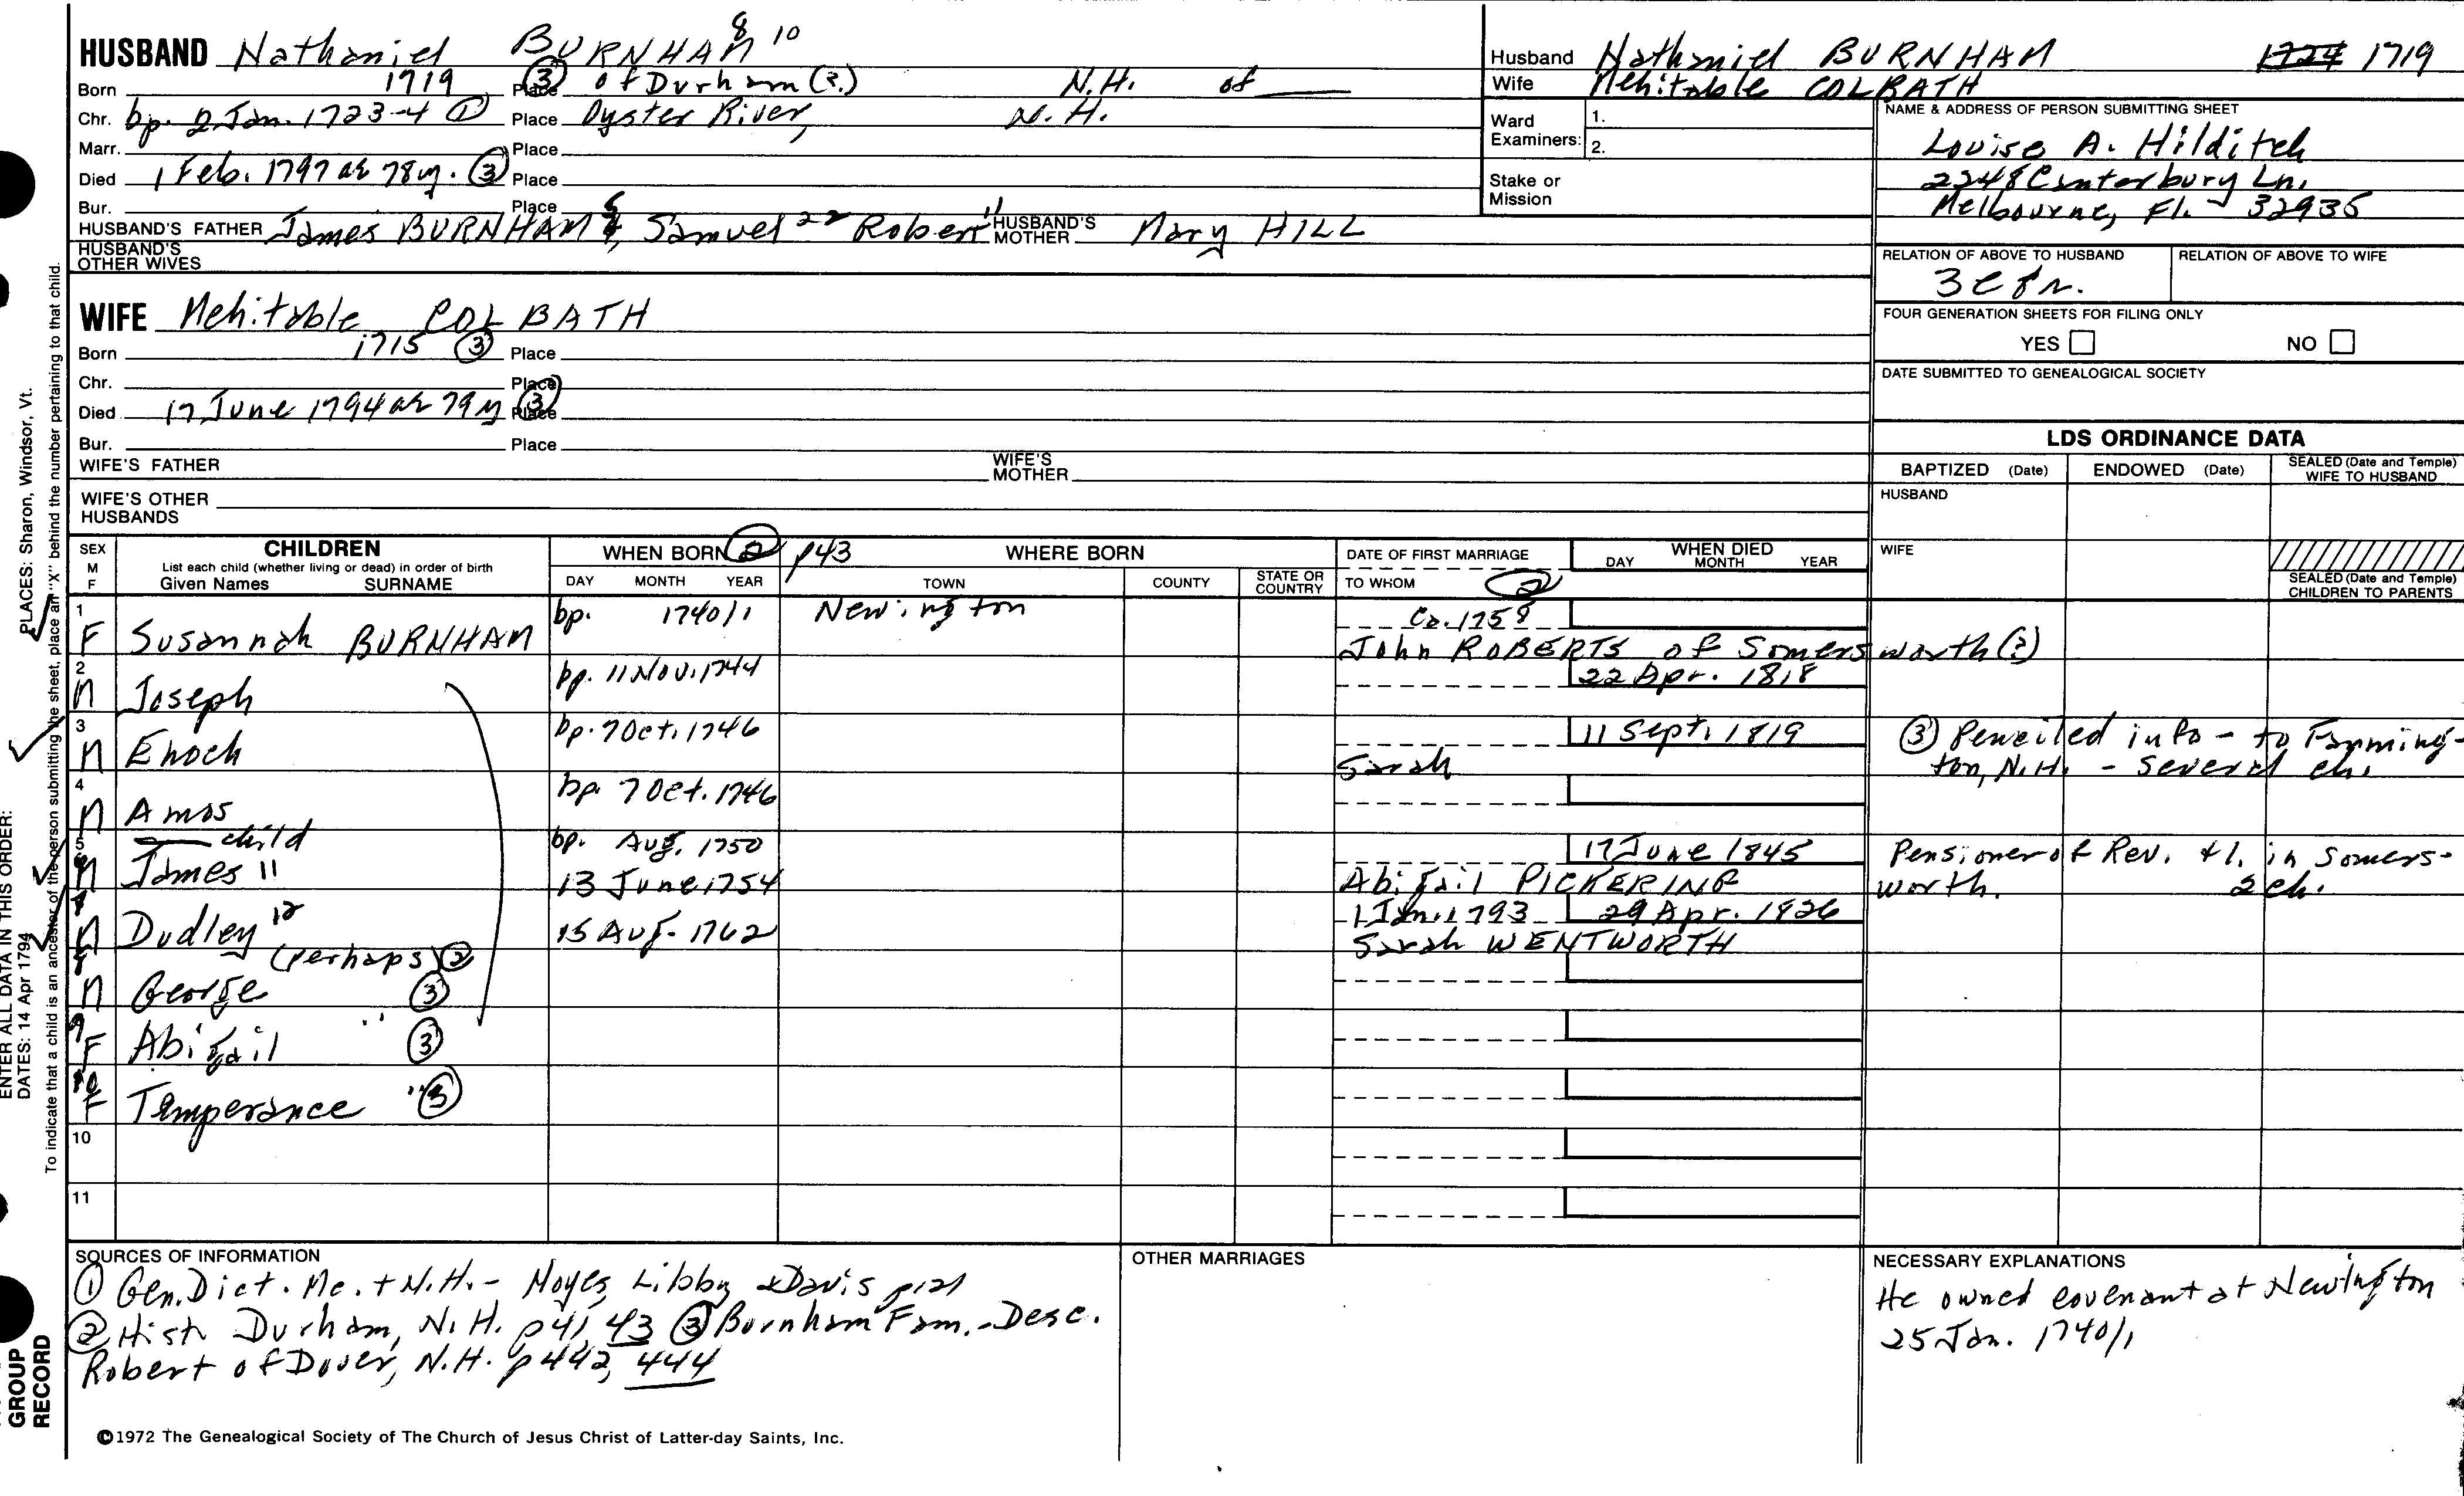 HUSBAND Nathaniel BURNHAM 8 10
Born 1719 Place ③ of Durham (?) N.H. of
Chr. bp. 2 Jan. 1723-4 ① Place Oyster River, N.H.
Marr. Place
Died 1 Feb. 1797 ae 78 y. ③ Place
Bur. Place
HUSBAND'S FATHER James BURNHAM 5, Samuel 22 Robert 11 HUSBAND'S MOTHER Mary HILL
HUSBAND'S OTHER WIVES
WIFE Mehitable COLBATH
Born 1715 ③ Place
Chr. Place
Died 17 June 1794 ae 79 y ③ Place
Bur. Place
WIFE'S FATHER WIFE'S MOTHER
WIFE'S OTHER HUSBANDS
Husband Nathaniel BURNHAM 1724 1719
Wife Mehitable COLBATH
Ward Examiners: 1.
2.
Stake or Mission
NAME & ADDRESS OF PERSON SUBMITTING SHEET
Louise A. Hilditch
2248 Canterbury Ln.
Melbourne, Fl. 32935
RELATION OF ABOVE TO HUSBAND RELATION OF ABOVE TO WIFE
FOUR GENERATION SHEETS FOR FILING ONLY
YES NO
DATE SUBMITTED TO GENEALOGICAL SOCIETY
LDS ORDINANCE DATA
BAPTIZED (Date) ENDOWED (Date) SEALED (Date and Temple) WIFE TO HUSBAND
HUSBAND
WIFE
SEALED (Date and Temple) CHILDREN TO PARENTS
SEX M F CHILDREN WHEN BORN ② p43 WHERE BORN DATE OF FIRST MARRIAGE WHEN DIED
List each child (whether living or dead) in order of birth
Given Names SURNAME DAY MONTH YEAR TOWN COUNTY STATE OR COUNTRY TO WHOM ② DAY MONTH YEAR
1 F Susannah BURNHAM bp. 1740/1 Newington Ca. 1758
John ROBERTS of Somersworth (?)
2 M Joseph bp. 11 Nov. 1744 22 Apr. 1818
3 M Enoch bp. 7 Oct. 1746 Sarah 11 Sept. 1819 ③ Penciled info - to Farmington, N.H. - several ch.
4 M Amos bp. 7 Oct. 1746
5 child bp. Aug. 1750
6 M James 11 13 June 1754 Abigail PICKERING 17 June 1845 Pensioner of Rev. +1. in Somersworth. 2 ch.
M Dudley 12 15 Aug. 1762 1 Jan. 1793 29 Apr. 1826
Sarah WENTWORTH
(perhaps) ②
M George ③
9 F Abigail " ③
10 F Temperance " ③
10
11
SOURCES OF INFORMATION
① Gen. Dict. Me. + N.H. - Noyes, Libby & Davis p121
② Hist. Durham, N.H. p41, 43 ③ Burnham Fam. - Desc.
Robert of Dover, N.H. p442, 444
OTHER MARRIAGES
NECESSARY EXPLANATIONS
He owned covenant at Newington
25 Jan. 1740/1
©1972 The Genealogical Society of The Church of Jesus Christ of Latter-day Saints, Inc.
PLACES: Sharon, Windsor, Vt.
ENTER ALL DATA IN THIS ORDER:
DATES: 14 Apr 1794
To indicate that a child is an ancestor of the person submitting the sheet, place an "X" behind the number pertaining to that child.
GROUP
RECORD